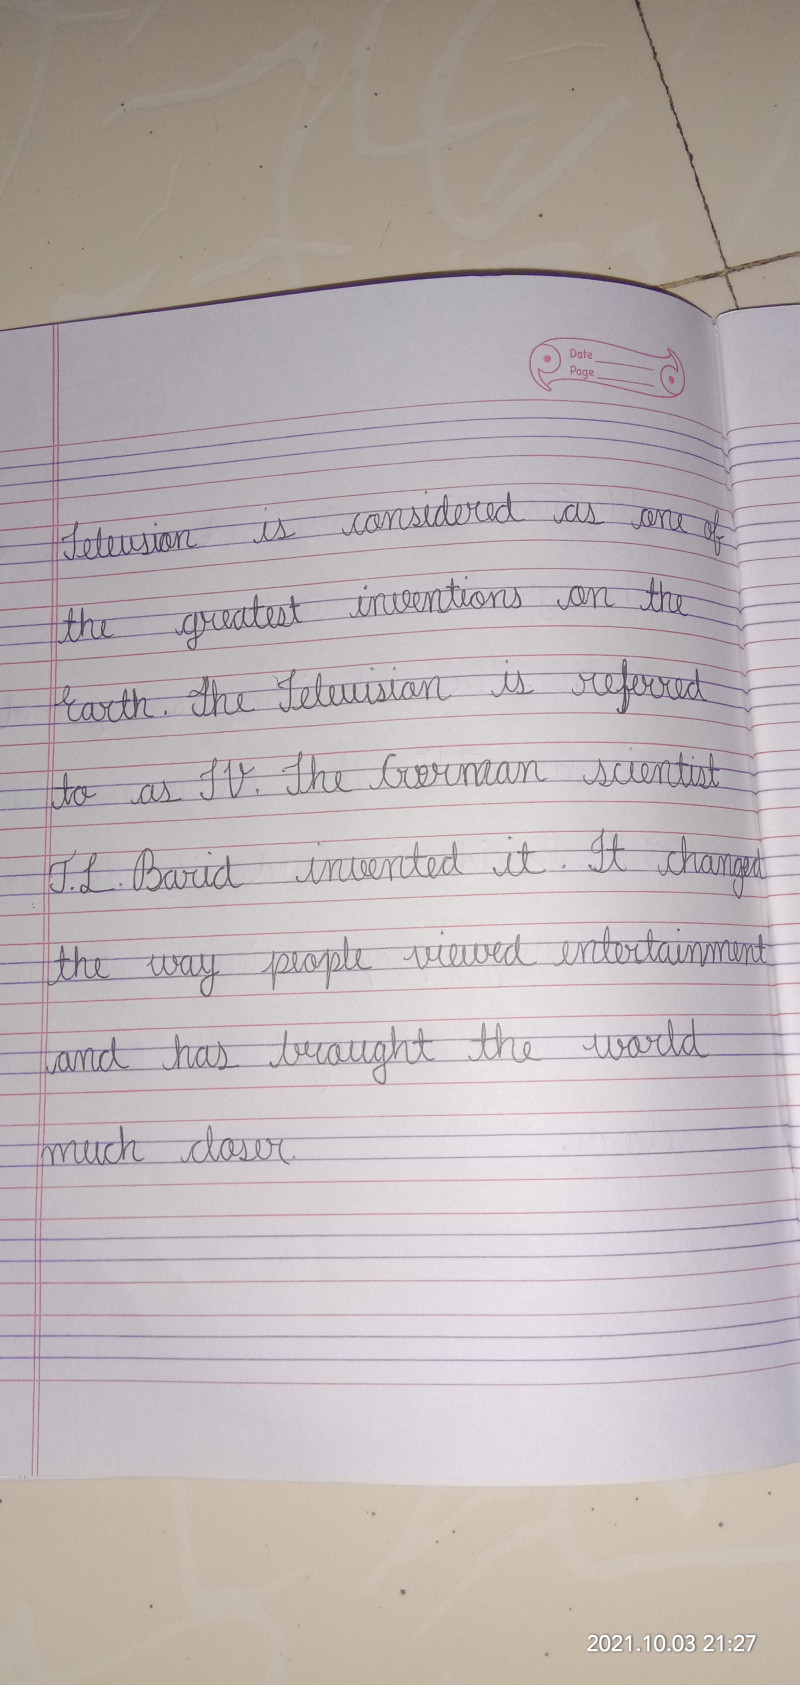 Date
Page
Television is considered as one of
the greatest inventions on the
Earth. The Television is referred
to as TV. The German scientist
J.L. Barid invented it. It changed
the way people viewed entertainment
and has brought the world
much closer.
2021.10.03 21:27